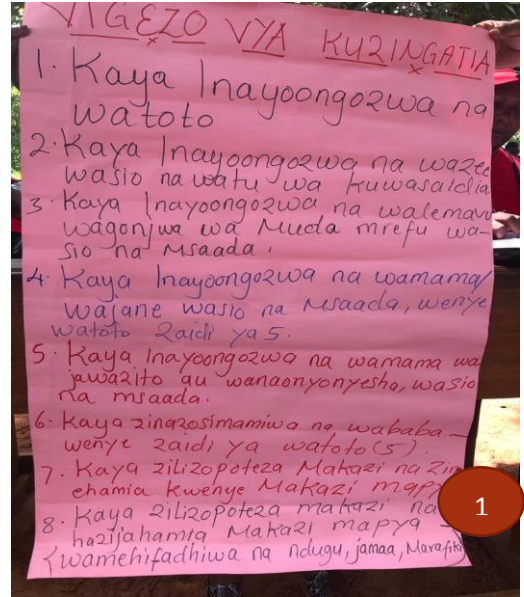 VIGEZO VYA KUZINGATIA
1. Kaya Inayoongozwa na
watoto
2. Kaya Inayoongozwa na wazee
wasio na watu wa kuwasaidia
3. Kaya Inayoongozwa na walemavu
wagonjwa wa Muda mrefu wa-
sio na Msaada.
4. Kaya Inayoongozwa na wamama/
wajane wasio na Msaada, wenye
watoto Zaidi ya 5.
5. Kaya Inayoongozwa na wamama wa
jawazito au wanaonyonyesha, wasio
na msaada.
6. Kaya zinazosimamiwa na wababa -
wenye zaidi ya watoto (5).
7. Kaya zilizopoteza Makazi na Zim
ehamia Kwenye Makazi mapy
8. Kaya zilizopoteza makazi na
hazijahamia Makazi mapya -
(wamehifadhiwa na ndugu, jamaa, Marafiki)
1